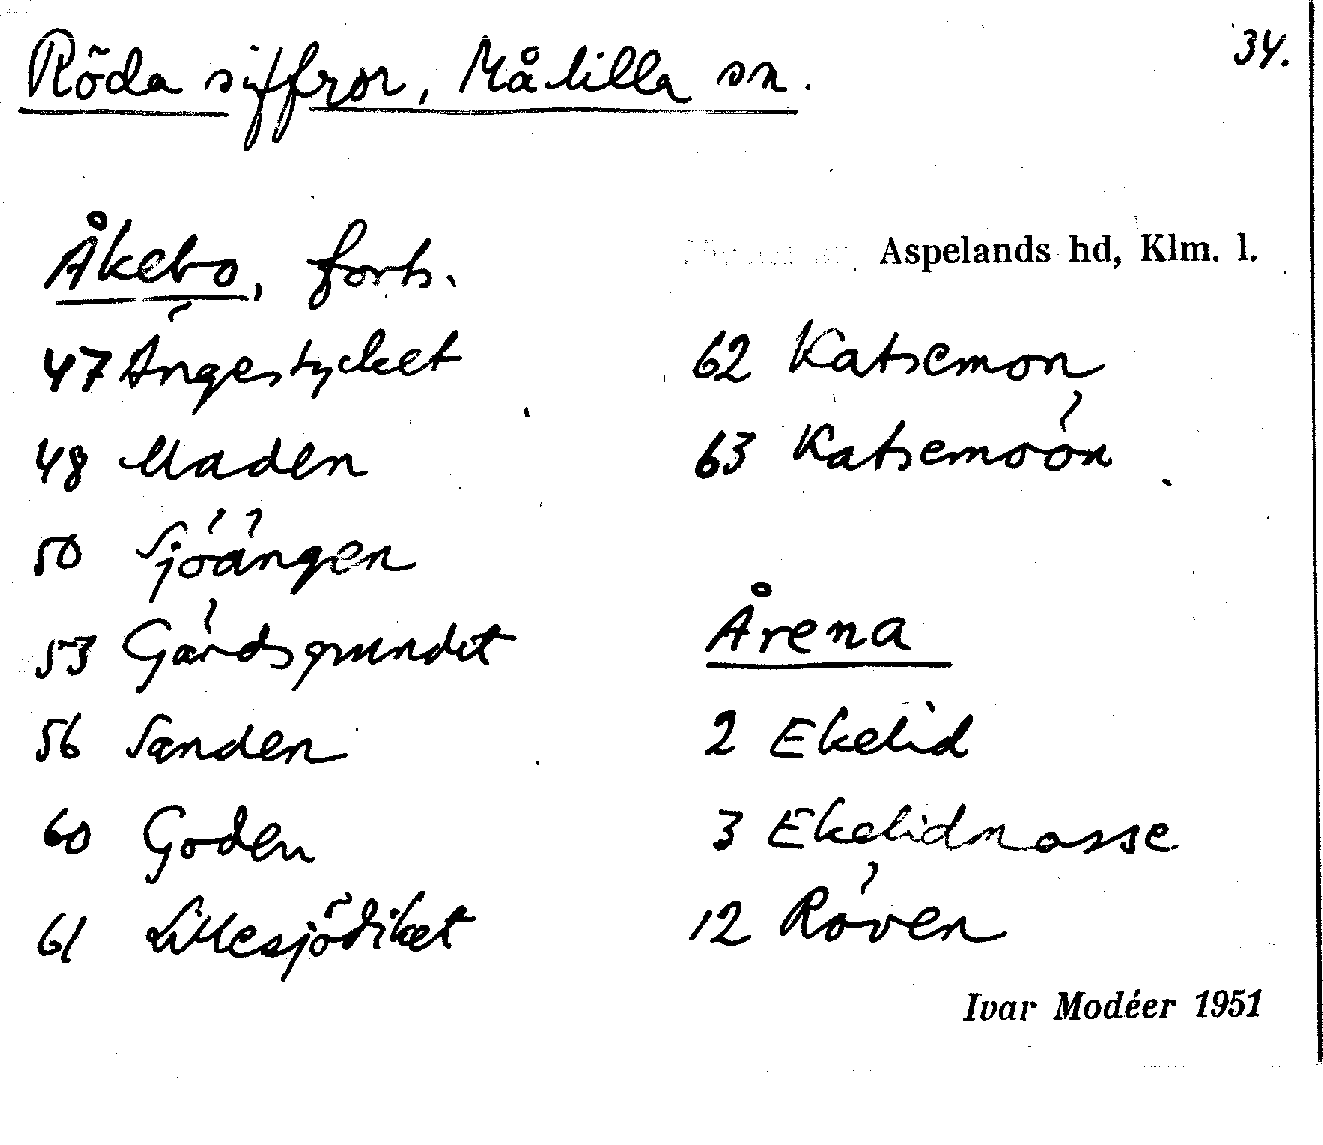 34.
Röda siffror, Målilla sn.
Aspelands hd, Klm. l.
Åkebo, forts.
47 Ängestycket
48 Maden
50 Sjöängen
53 Gärdsgrundet
56 Sanden
60 Göden
61 Lillesjödiket
62 Katsemon
63 Katsemoön
Årena
2 Ekelid
3 Ekelidnasse
12 Röven
Ivar Modéer 1951